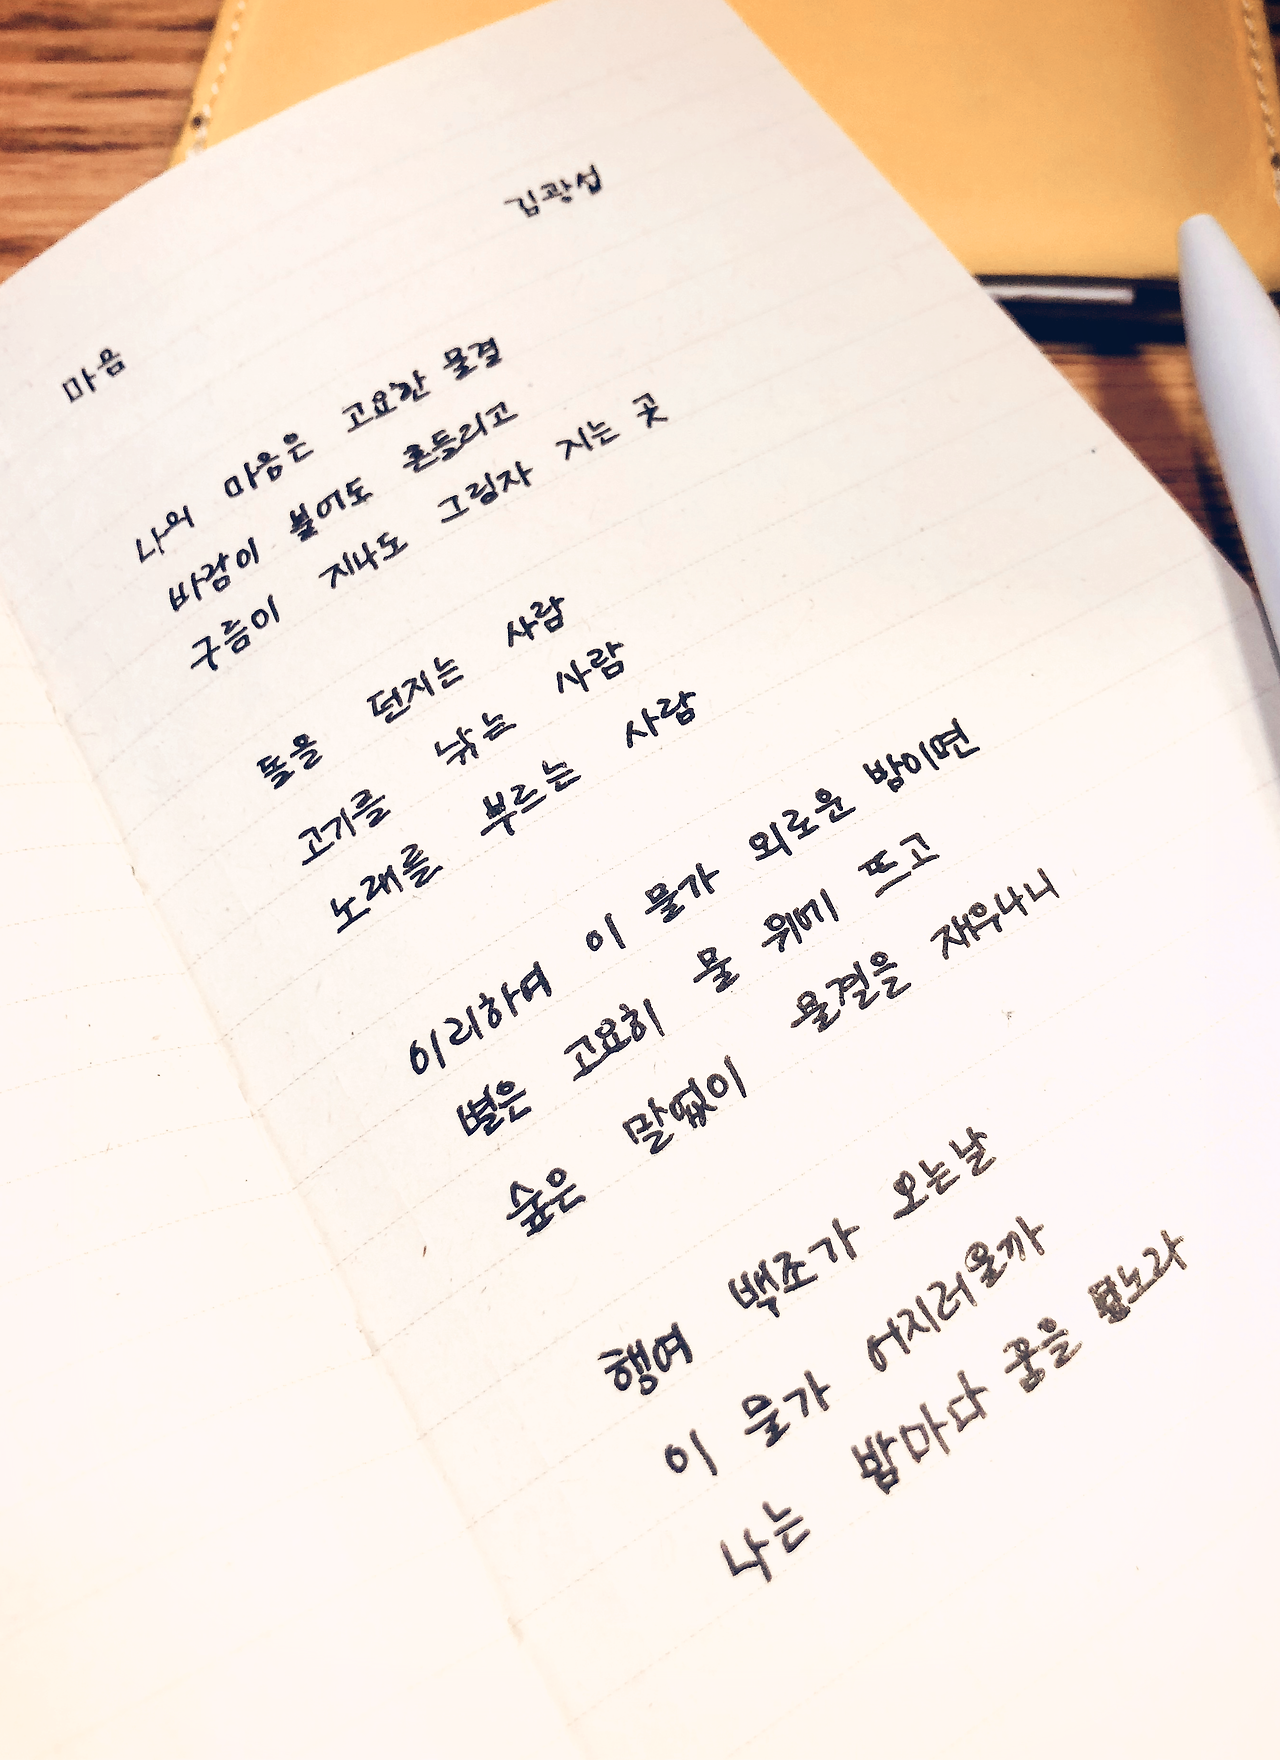 김광섭
마음
나의 마음은 고요한 물결
바람이 불어도 흔들리고
구름이 지나도 그림자 지는 곳
돌을 던지는 사람
고기를 낚는 사람
노래를 부르는 사람
이리하여 이 물가 외로운 밤이면
별은 고요히 물 위에 뜨고
숲은 말없이 물결을 재우나니
행여 백조가 오는날
이 물가 어지러울까
나는 밤마다 꿈을 덮노라